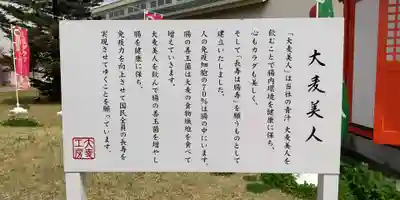 大麦美人
「大麦美人」は当社の青汁 大麦美人を
飲むことで腸内環境を健康に保ち、
心もカラダも美しく、
そして「長寿は腸寿」を願うものとして
建立いたしました。
人の免疫細胞の70%は腸の中にいます。
腸の善玉菌は大麦の食物繊維を食べて
増えていきます。
大麦美人を飲んで腸の善玉菌を増やし
腸を健康に保ち、
免疫力を向上させて国民全員の長寿を
実現させてゆくことを願っています。
大麦
工房